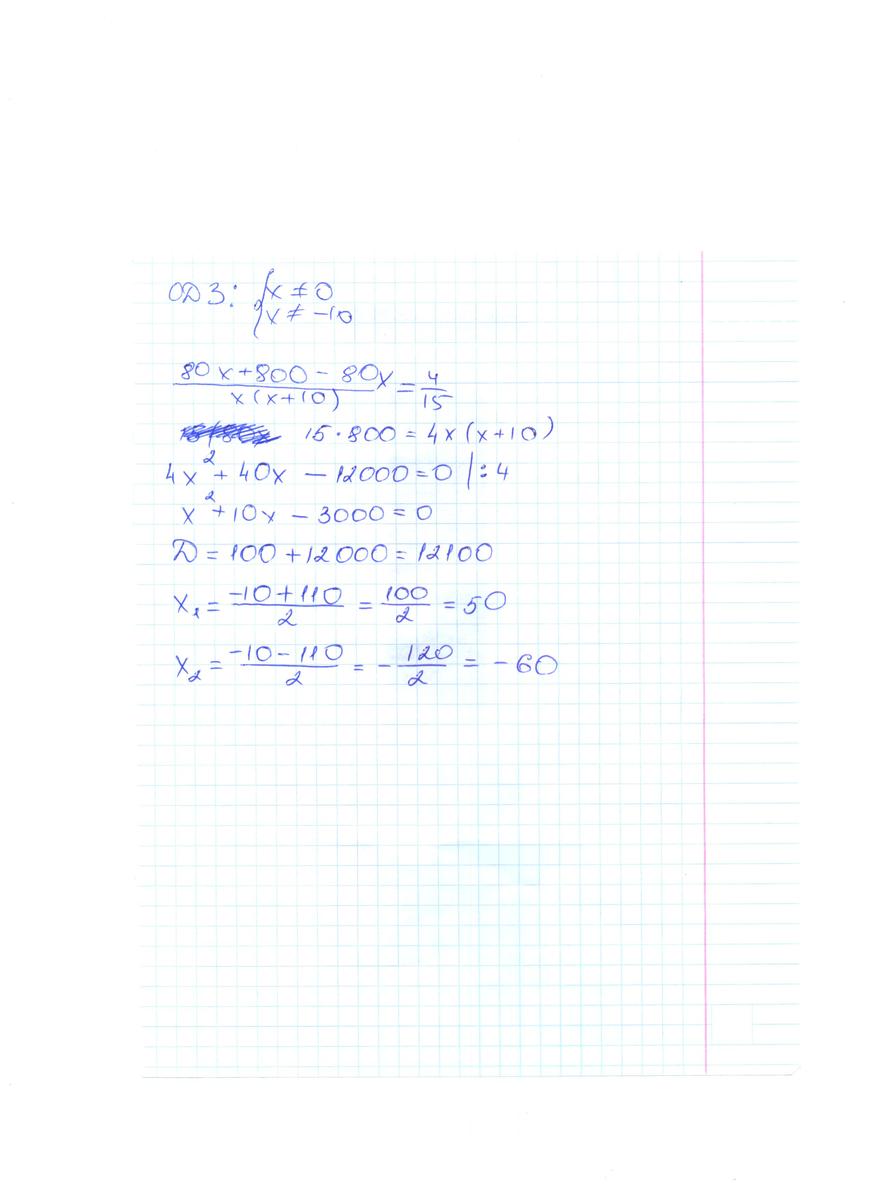 ОДЗ: { x ≠ 0
x ≠ -10
(80x+800-80x)/(x(x+10)) = 4/15
15·800 = 4x(x+10)
4x² + 40x - 12000 = 0 |:4
x² + 10x - 3000 = 0
D = 100 + 12000 = 12100
x₁ = (-10+110)/2 = 100/2 = 50
x₂ = (-10-110)/2 = -120/2 = -60